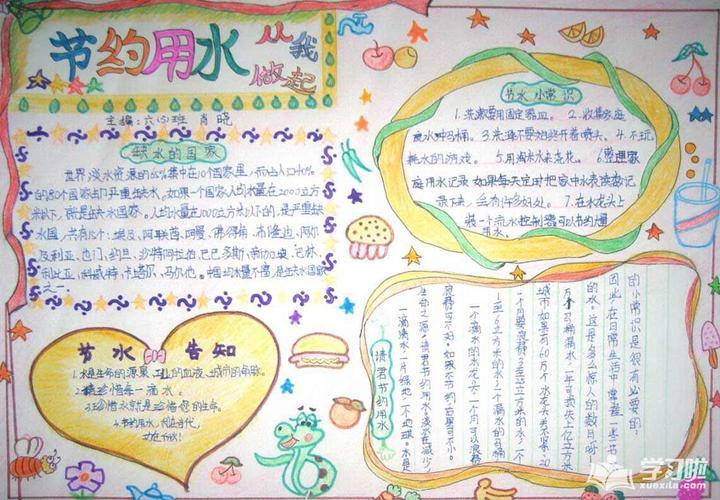 节约用水 从我做起
主编:六(1)班 肖晓
缺水的国家
世界淡水资源的65%集中在10个国家里,而占人口40%
的80个国家却严重缺水。如果一个国家人均水量在2000立方
米以下,就是缺水国家。人均水量在1000立方米以下的,是严重缺
水国,共有15个:埃及,阿联酋,阿曼,
及利亚,也门,约旦,沙特阿拉伯,巴巴多斯,新加坡,
利比亚,科威特,卡塔尔,马尔他。中国均水量不富,是缺水国家
之一.
节水 告知
1.水是生命的源泉、工业的血液、城市的命脉。
2.请珍惜每一滴水。
3.珍惜水就是珍惜您的生命。
4.节约用水,利在当代,
功在千秋!
节水小常识
1.洗漱要用固定器皿。2.收集家庭
废水冲马桶。3.洗澡不要始终开着喷头。4.不玩
耗水的游戏。5.用淘米水来浇花。6.管理家
庭用水记录 如果每天定时把家中水表读数记
录下来,会有许多好处。7.在水龙头上
装一个流水控制器可以节约水量
用水。
请君节约用水
一滴滴水,一片绿地,一个地球。水是
生命之源,请君节约用水,淡水在减少,
浪费可不好,如果不节约,后果可不小。
一个滴水的水龙头,一个月可以浪费
1至6立方米的水;一个漏水的马桶,
一个月要浪费3至25立方米的水,一个
城市如果有60万个水龙头关不紧、20
万个马桶漏水,一年可损失上亿立方米
的水,这是多么惊人的数目呀!
因此,在日常生活中,掌握一些节水
的小常识是很有必要的:
学习啦
www.xuexila.com